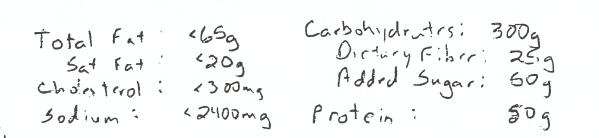 Total Fat : <65g
Sat Fat : <20g
Cholesterol : <300mg
Sodium : <2400mg
Carbohydrates: 300g
Dietary Fiber: 25g
Added Sugar: 50g
Protein : 50g